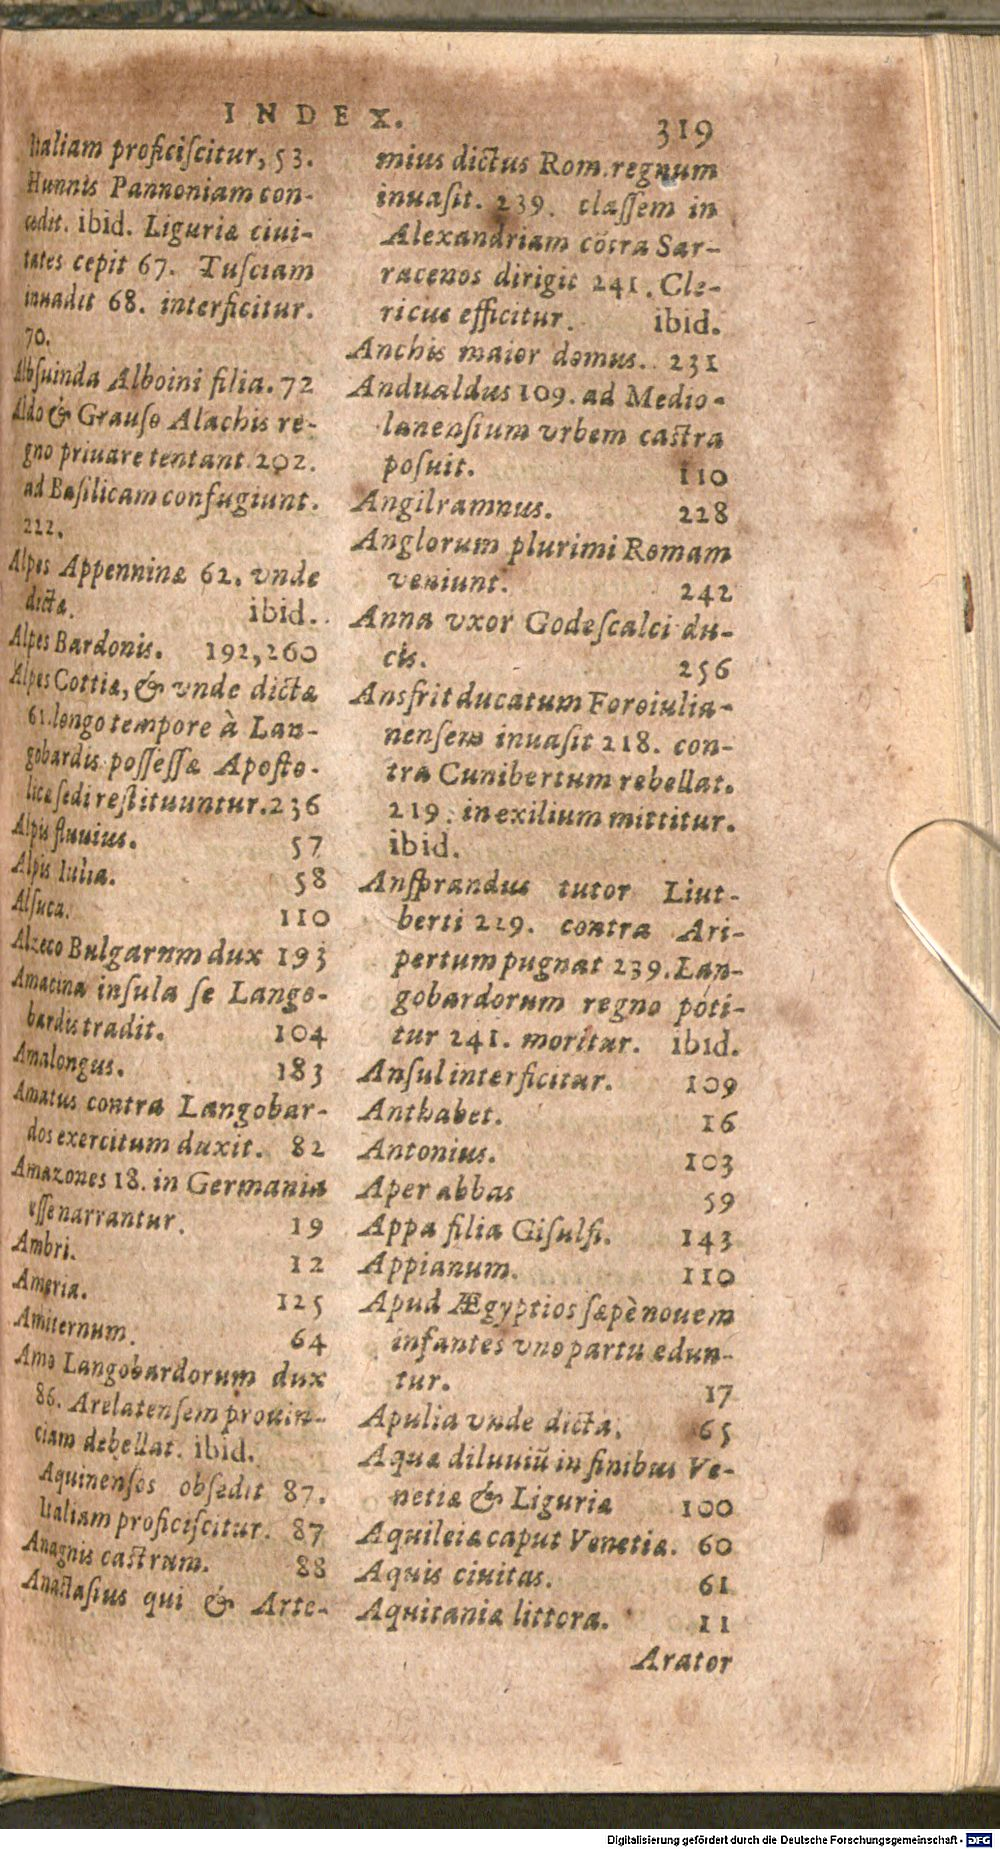 INDEX.
319
Italiam proficiſcitur, 53.
Hunnis Pannoniam con-
cedit. ibid. Liguriæ ciui-
tates cepit 67. Tuſciam
inuadit 68. interficitur.
70.
Albſuinda Alboini filia. 72
Aldo & Grauſo Alachis re-
gno priuare tentant 202.
ad Baſilicam confugiunt.
212.
Alpes Appenninæ 62. vnde
dictæ. ibid.
Alpes Bardonis. 192, 260
Alpes Cottiæ, & vnde dictæ
61. longo tempore à Lan-
gobardis poſſeſſæ Apoſto-
licæ ſedi reſtituuntur. 236
Alpis fluuius. 57
Alpis Iulia. 58
Alſuca. 110
Alzeco Bulgarum dux 193
Amacina inſula ſe Lango-
bardis tradit. 104
Amalongus. 183
Amatus contra Langobar-
dos exercitum duxit. 82
Amazones 18. in Germania
eſſe narrantur. 19
Ambri. 12
Ameria. 125
Amiternum. 64
Amo Langobardorum dux
86. Arelatenſem prouin-
ciam debellat. ibid.
Aquinenſes obſedit 87.
Italiam proficiſcitur. 87
Anagnis caſtrum. 88
Anaſtaſius qui & Arte-
mius dictus Rom. regnum
inuaſit. 239. claſſem in
Alexandriam cōtra Sar-
racenos dirigit 241. Cle-
ricus efficitur. ibid.
Anchis maior domus. 231
Andualdus 109. ad Medio-
lanenſium vrbem caſtra
poſuit. 110
Angilramnus. 228
Anglorum plurimi Romam
veniunt. 242
Anna vxor Godeſcalci du-
cis. 256
Ansfrit ducatum Foroiulia-
nenſem inuaſit 218. con-
tra Cunibertum rebellat.
219. in exilium mittitur.
ibid.
Anſprandus tutor Liut-
berti 229. contra Ari-
pertum pugnat 239. Lan-
gobardorum regno poti-
tur 241. moritur. ibid.
Anſul interficitur. 109
Anthabet. 16
Antonius. 103
Aper abbas 59
Appa filia Giſulfi. 143
Appianum. 110
Apud Ægyptios ſæpè nouem
infantes vno partu edun-
tur. 17
Apulia vnde dicta. 65
Aquæ diluuiū in finibus Ve-
netiæ & Liguriæ 100
Aquileia caput Venetiæ. 60
Aquis ciuitas. 61
Aquitaniæ littora. 11
Arator
Digitalisierung gefördert durch die Deutsche Forschungsgemeinschaft - DFG